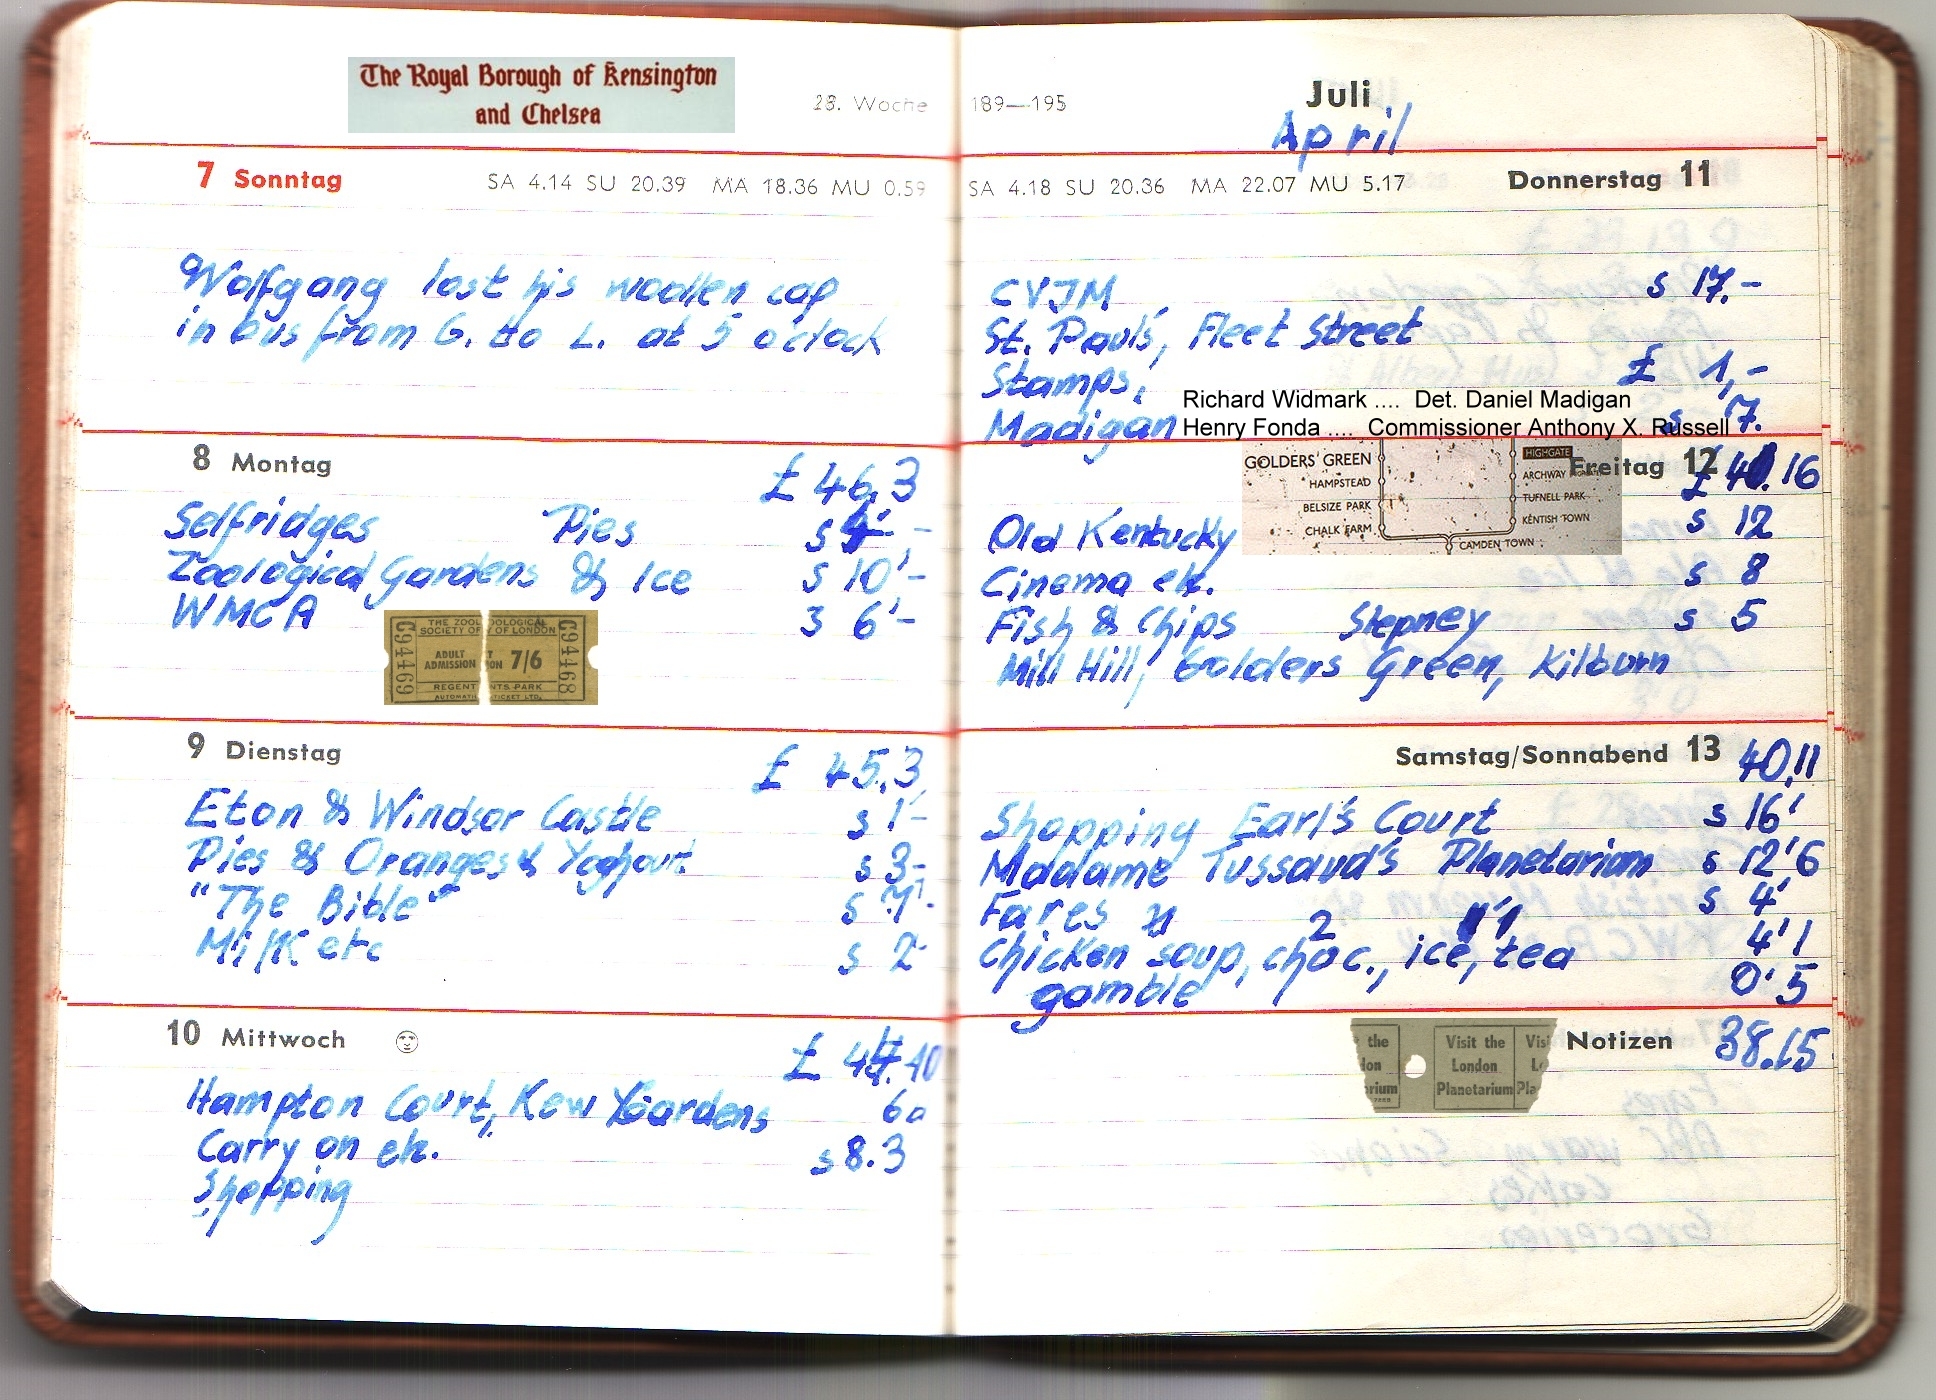 The Royal Borough of Kensington
and Chelsea
28. Woche
7 Sonntag
SA 4.14 SU 20.39 MA 18.36 MU 0.59
Wolfgang lost his woollen cap
in bus from G. to L. at 5 o'clock
8 Montag
£ 46,3
Selfridges Pies s
Zoological Gardens & Ice s 10'-
WMCA 3 6'-
THE ZOOLOGICAL
SOCIETY OF LONDON
ADULT
ADMISSION 7/6
REGENTS PARK
G94469
G94468
9 Dienstag
£ 45.3
Eton & Windsor Castle s 1'-
Pies & Oranges & Yoghourt s 3-
"The Bible" s 7'-
Milk etc s 2'
10 Mittwoch
£ 44.10
Hampton Court, Kew Gardens 6d
Carry on etc. s 8.3
Shopping
189—195
Juli
April
SA 4.18 SU 20.36 MA 22.07 MU 5.17
Donnerstag 11
CVJM s 17.-
St. Paul's, Fleet Street
Stamps, £ 1,-
Madigan s 7.
Richard Widmark .... Det. Daniel Madigan
Henry Fonda .... Commissioner Anthony X. Russell
Freitag 12
16
GOLDERS GREEN
HAMPSTEAD
BELSIZE PARK
CHALK FARM
HIGHGATE
ARCHWAY
TUFNELL PARK
KENTISH TOWN
CAMDEN TOWN
Old Kentucky s 12
Cinema etc. s 8
Fish & Chips Stepney s 5
Mill Hill, Golders Green, Kilburn
Samstag/Sonnabend 13
40,11
Shopping Earl's Court s 16'
Madame Tussaud's Planetarium s 12'6
Fares s 4'
2 1'1
Chicken soup, choc., ice, tea 4'1
gamble 0'5
Notizen
38.15
Visit the
London
Planetarium